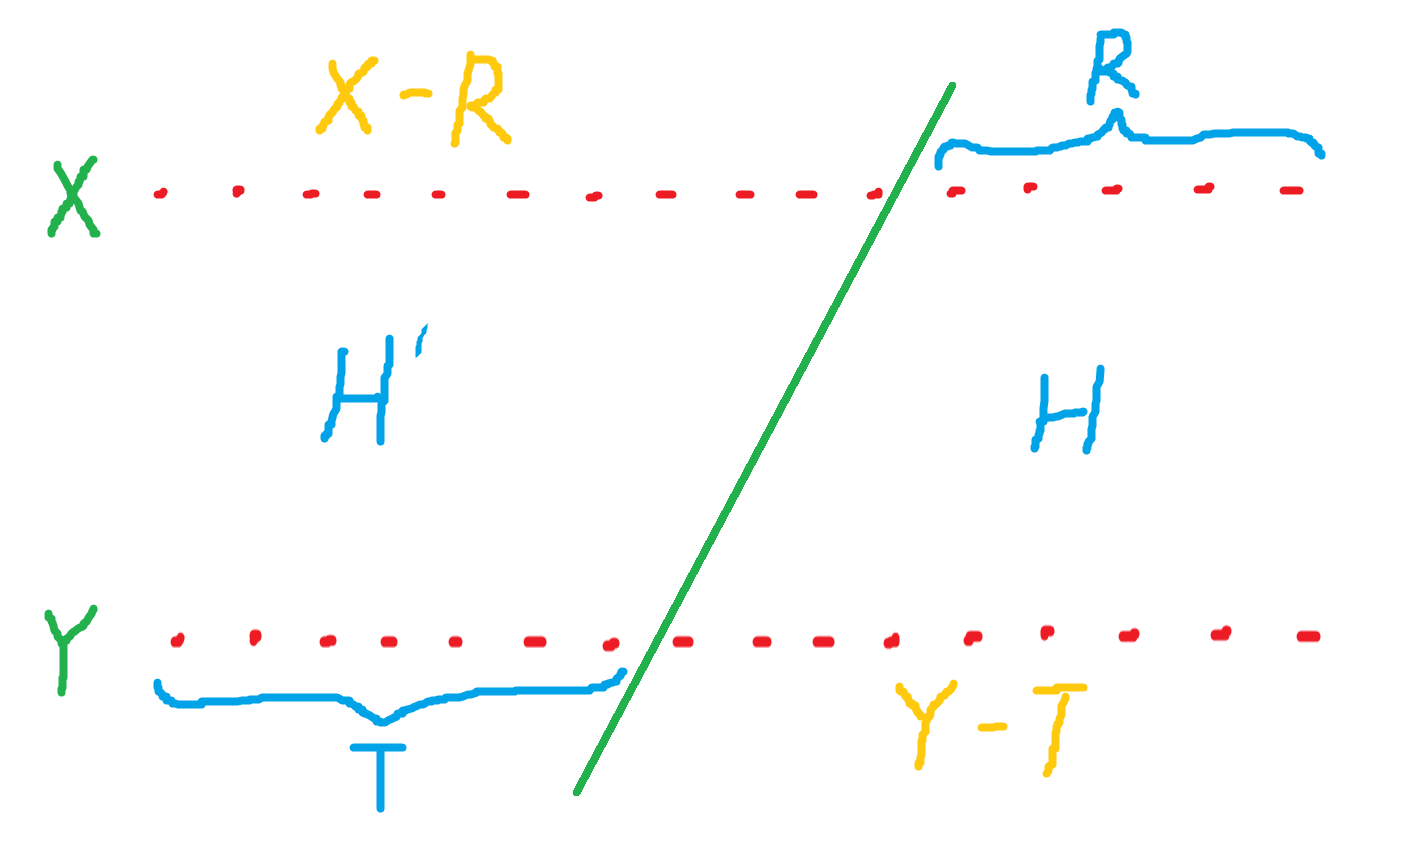 X - R
R
X
H'
H
Y
T
Y - T